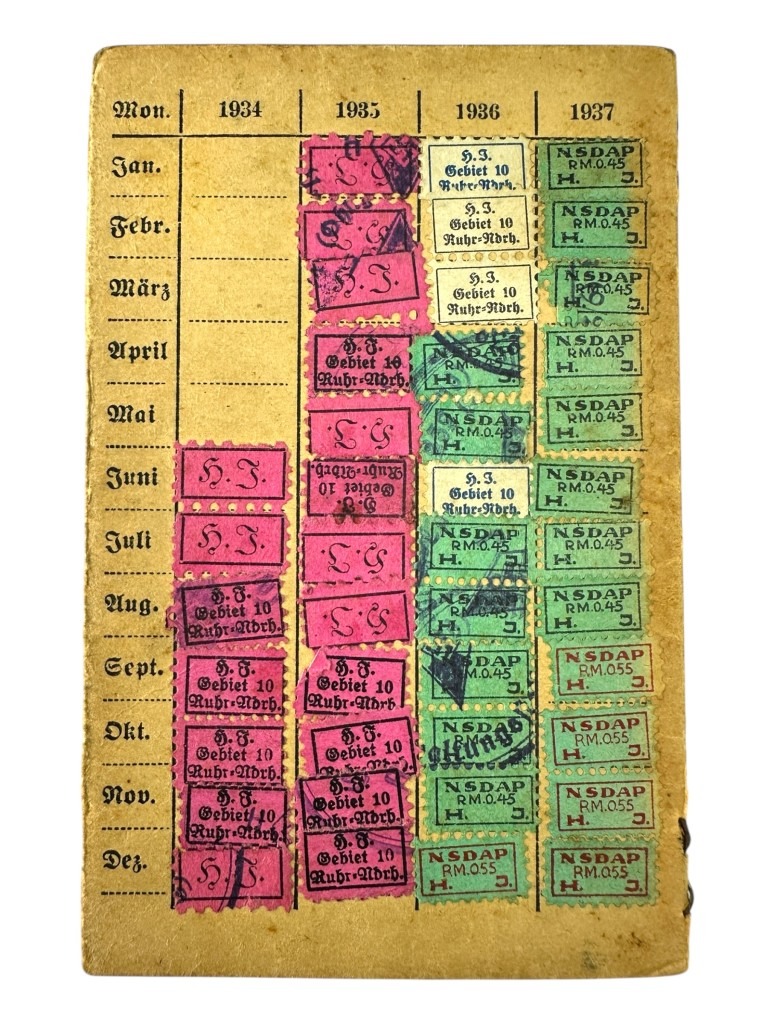 Mon. 1934 1935 1936 1937
Jan.
H. J.
H. J.
Gebiet 10
Ruhr=Ndrh.
NSDAP
RM.0.45
H. J.
Febr.
H. J.
H. J.
Gebiet 10
Ruhr=Ndrh.
NSDAP
RM.0.45
H. J.
März
H. J.
H. J.
Gebiet 10
Ruhr=Ndrh.
NSDAP
RM.0.45
H. J.
April
H. J.
Gebiet 10
Ruhr=Ndrh.
NSDAP
RM.0.45
H. J.
NSDAP
RM.0.45
H. J.
Mai
H. J.
NSDAP
RM.0.45
H. J.
NSDAP
RM.0.45
H. J.
Juni
H. J.
H. J.
Gebiet 10
Ruhr=Ndrh.
H. J.
Gebiet 10
Ruhr=Ndrh.
NSDAP
RM.0.45
H. J.
Juli
H. J.
H. J.
NSDAP
RM.0.45
H. J.
NSDAP
RM.0.45
H. J.
Aug.
H. J.
Gebiet 10
Ruhr=Ndrh.
H. J.
NSDAP
RM.0.45
H. J.
NSDAP
RM.0.45
H. J.
Sept.
H. J.
Gebiet 10
Ruhr=Ndrh.
H. J.
Gebiet 10
Ruhr=Ndrh.
NSDAP
H. J.
NSDAP
RM.055
H. J.
Okt.
H. J.
Gebiet 10
Ruhr=Ndrh.
H. J.
Gebiet 10
Ruhr=Ndrh.
NSDAP
RM.0.45
NSDAP
RM.055
H. J.
Nov.
H. J.
Gebiet 10
Ruhr=Ndrh.
H. J.
Gebiet 10
Ruhr=Ndrh.
NSDAP
RM.0.45
H. J.
NSDAP
RM.055
H. J.
Dez.
H. J.
H. J.
Gebiet 10
Ruhr=Ndrh.
NSDAP
RM.055
H. J.
NSDAP
RM.055
H. J.